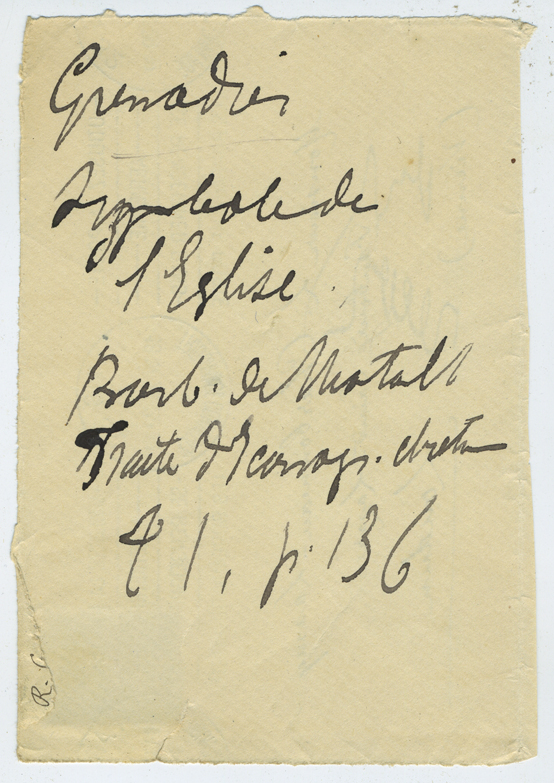 Grenadier
Symbole de
l'Eglise
Barb. de Montault
Traité d'Iconogr. chrétn
t 1, p. 136
R.